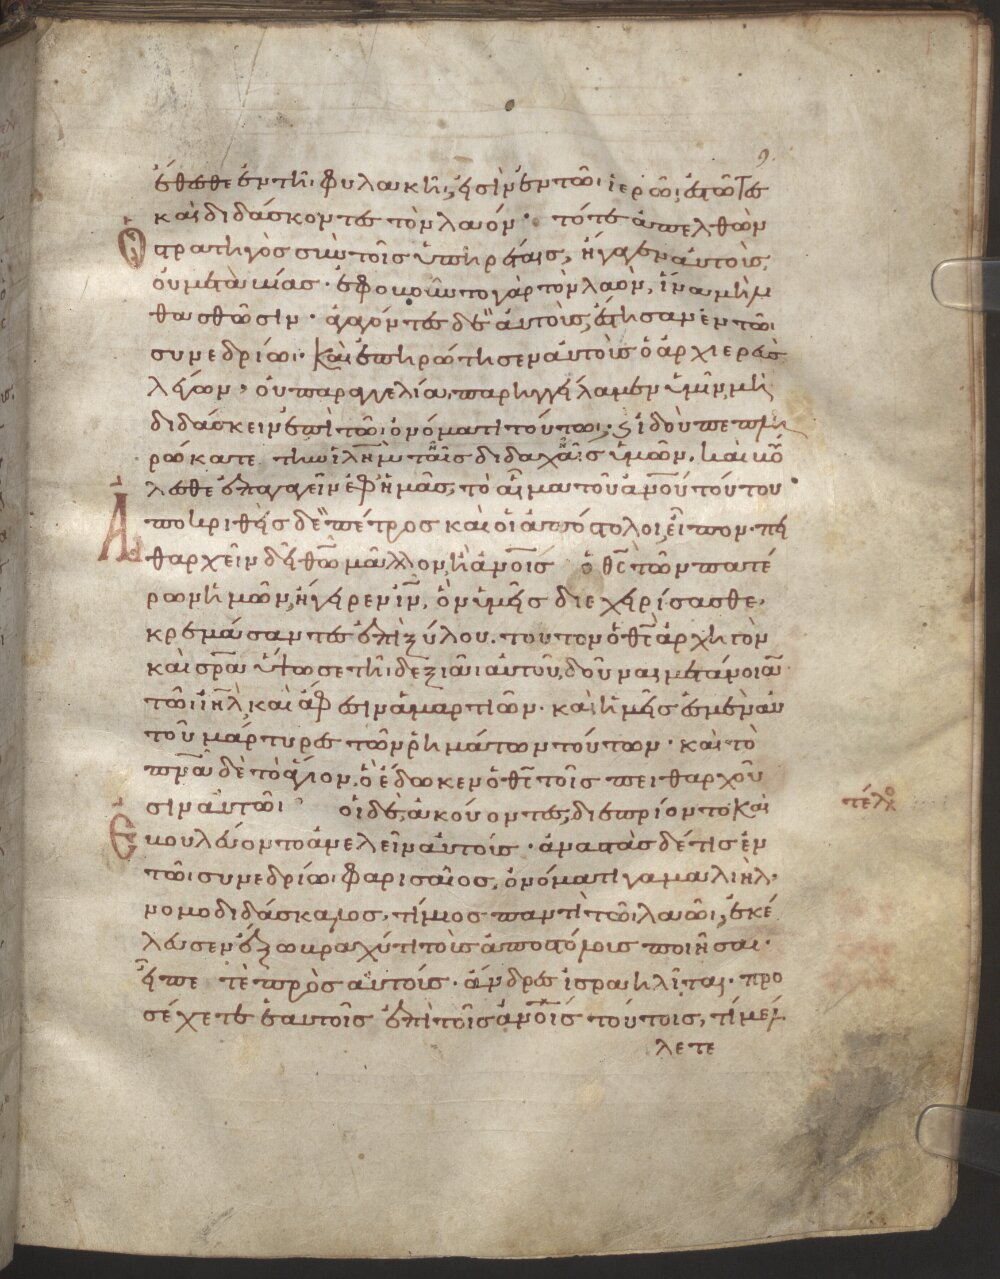 9
ἔθεσθε ἐν τῆι φυλακῆι, εἰσὶν ἐν τῶι ἱερῶι ἑστῶτες
καὶ διδάσκοντες τὸν λαόν· τότε ἀπελθὼν
ὁ στρατηγὸς σὺν τοῖς ὑπηρέταις, ἤγαγεν αὐτοὺς,
οὐ μετὰ βίας· ἐφοβοῦντο γὰρ τὸν λαὸν, ἵνα μὴ λι
θασθῶσιν· ἀγαγόντες δὲ αὐτοὺς, ἔστησαν ἐν τῶι
συνεδρίωι· Καὶ ἐπηρώτησεν αὐτοὺς ὁ ἀρχιερεὺς
λέγων, οὐ παραγγελία παρηγγείλαμεν ὑμῖν, μὴ
διδάσκειν ἐπὶ τῶι ὀνόματι τούτωι; ϛ ἰδοὺ πεπλη
ρώκατε τὴν ἱλημ ταῖς διδαχαῖς ὑμῶν, καὶ βού
λεσθε ἐπαγαγεῖν ἐφ ἡμᾶς, τὸ αἷμα τοῦ ἀνου τούτου·
Ἀποκριθεὶς δὲ πέτρος καὶ οἱ ἀπόστολοι, εἶπον· πει
θαρχεῖν δεῖ θω μᾶλλον, ἢ ἀνοις ὁ θς τῶν πατέ
ρων ἡμῶν, ἤγειρεν ιν, ὃν ὑμεῖς διεχειρίσασθε,
κρεμάσαντες ἐπὶ ξύλου. τοῦτον ὁ θς ἀρχηγὸν
καὶ σρα ὕψωσε τῆι δεξιᾶι αὐτοῦ, δοῦναι μετάνοιαν
τῶι ιηλ, καὶ ἄφεσιν ἁμαρτιῶν. καὶ ἡμεῖς ἐσμὲν αὐ
τοῦ μάρτυρες τῶν ῥημάτων τούτων· καὶ τὸ
πνα δὲ τὸ ἅγιον, ὃ ἔδωκεν ὁ θς τοῖς πειθαρχοῦ
σιν αὐτῶι οἱ δὲ, ἀκούοντες, διεπρίοντο Καὶ
τέλος
ἐβουλεύοντο ἀνελεῖν αὐτούς· ἀναστὰς δέ τις ἐν
τῶι συνεδρίωι φαρισαῖος, ὀνόματι γαμαλιὴλ,
νομοδιδάσκαλος, τίμιος παντὶ τῶι λαῶι, ἐκέ
λευσεν ἔξω βραχύ τι τοὺς ἀποστόλους ποιῆσαι.
εἶπέ τε πρὸς αὐτούς· ἄνδρες ἰσραηλῖται· προ
σέχετε ἑαυτοῖς ἐπὶ τοῖς ἀνοις τούτοις, τί μέλ
λετε